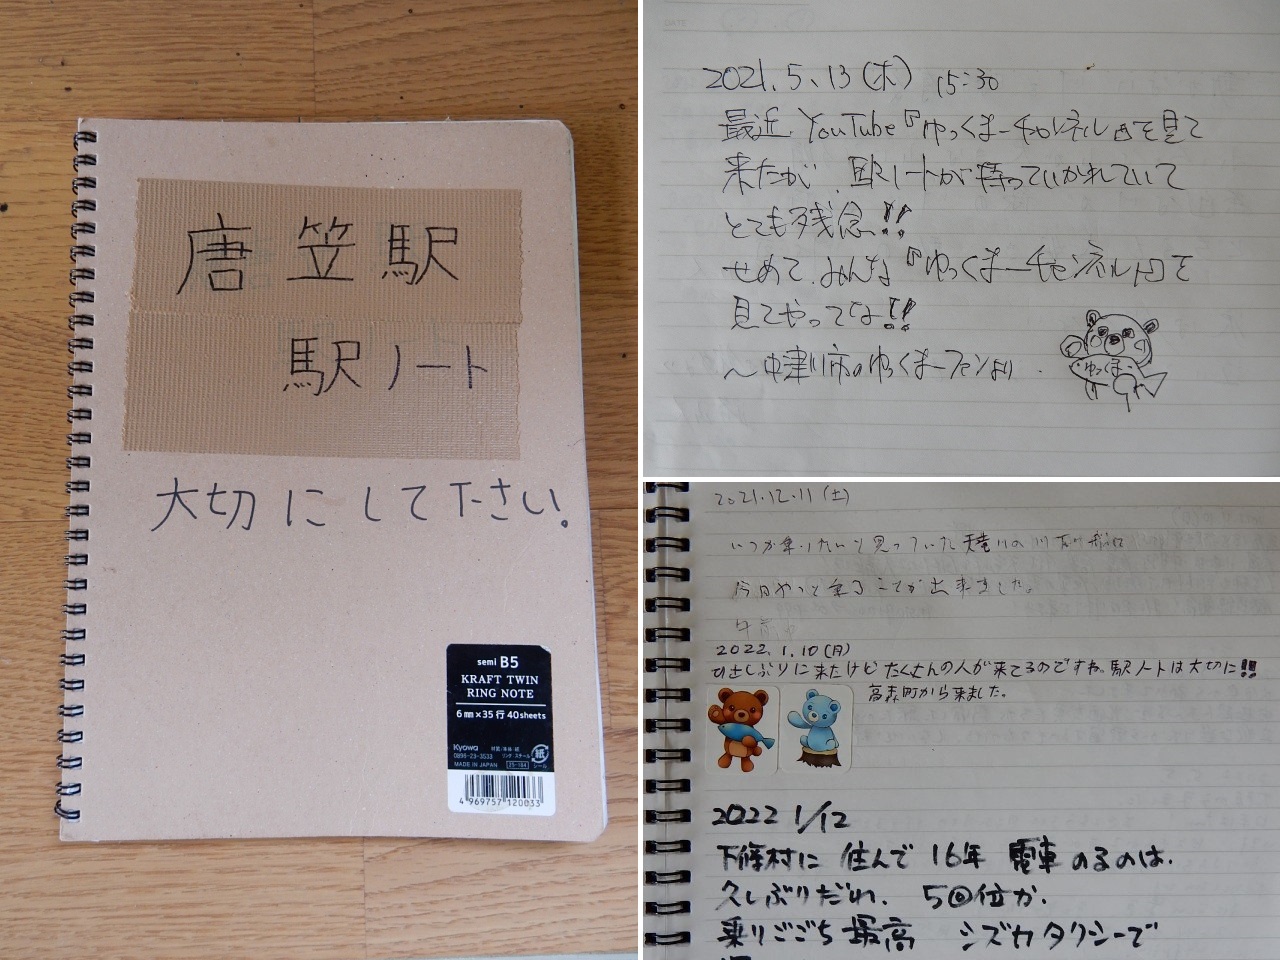 唐笠駅
駅ノート
大切にして下さい。
semi B5
KRAFT TWIN
RING NOTE
6mm×35行 40sheets
Kyowa
0896-23-3533
MADE IN JAPAN
紙
シール
4 969757 120033
2021.5.13(木) 15:30
最近 YouTube『ゆっくまーチャンネル』を見て
来たが、駅ノートが持っていかれていて
とても残念!!
せめて、みんな『ゆっくまーチャンネル』を
見てやってな!!
〜中津川市のゆっくまーファンより
ゆっくま
2021.12.11(土)
いつか乗りたいと思っていた天竜川の川下り
今日やっと乗ることが出来ました。
2022.1.10(月)
ひさしぶりに来たけど たくさんの人が来てるのですね。駅ノートは大切に!!
高森町から来ました。
2022 1/12
下條村に住んで 16年 電車のるのは、
久しぶりだわ、 5回位か、
乗りごごち最高 シズカタクシーで